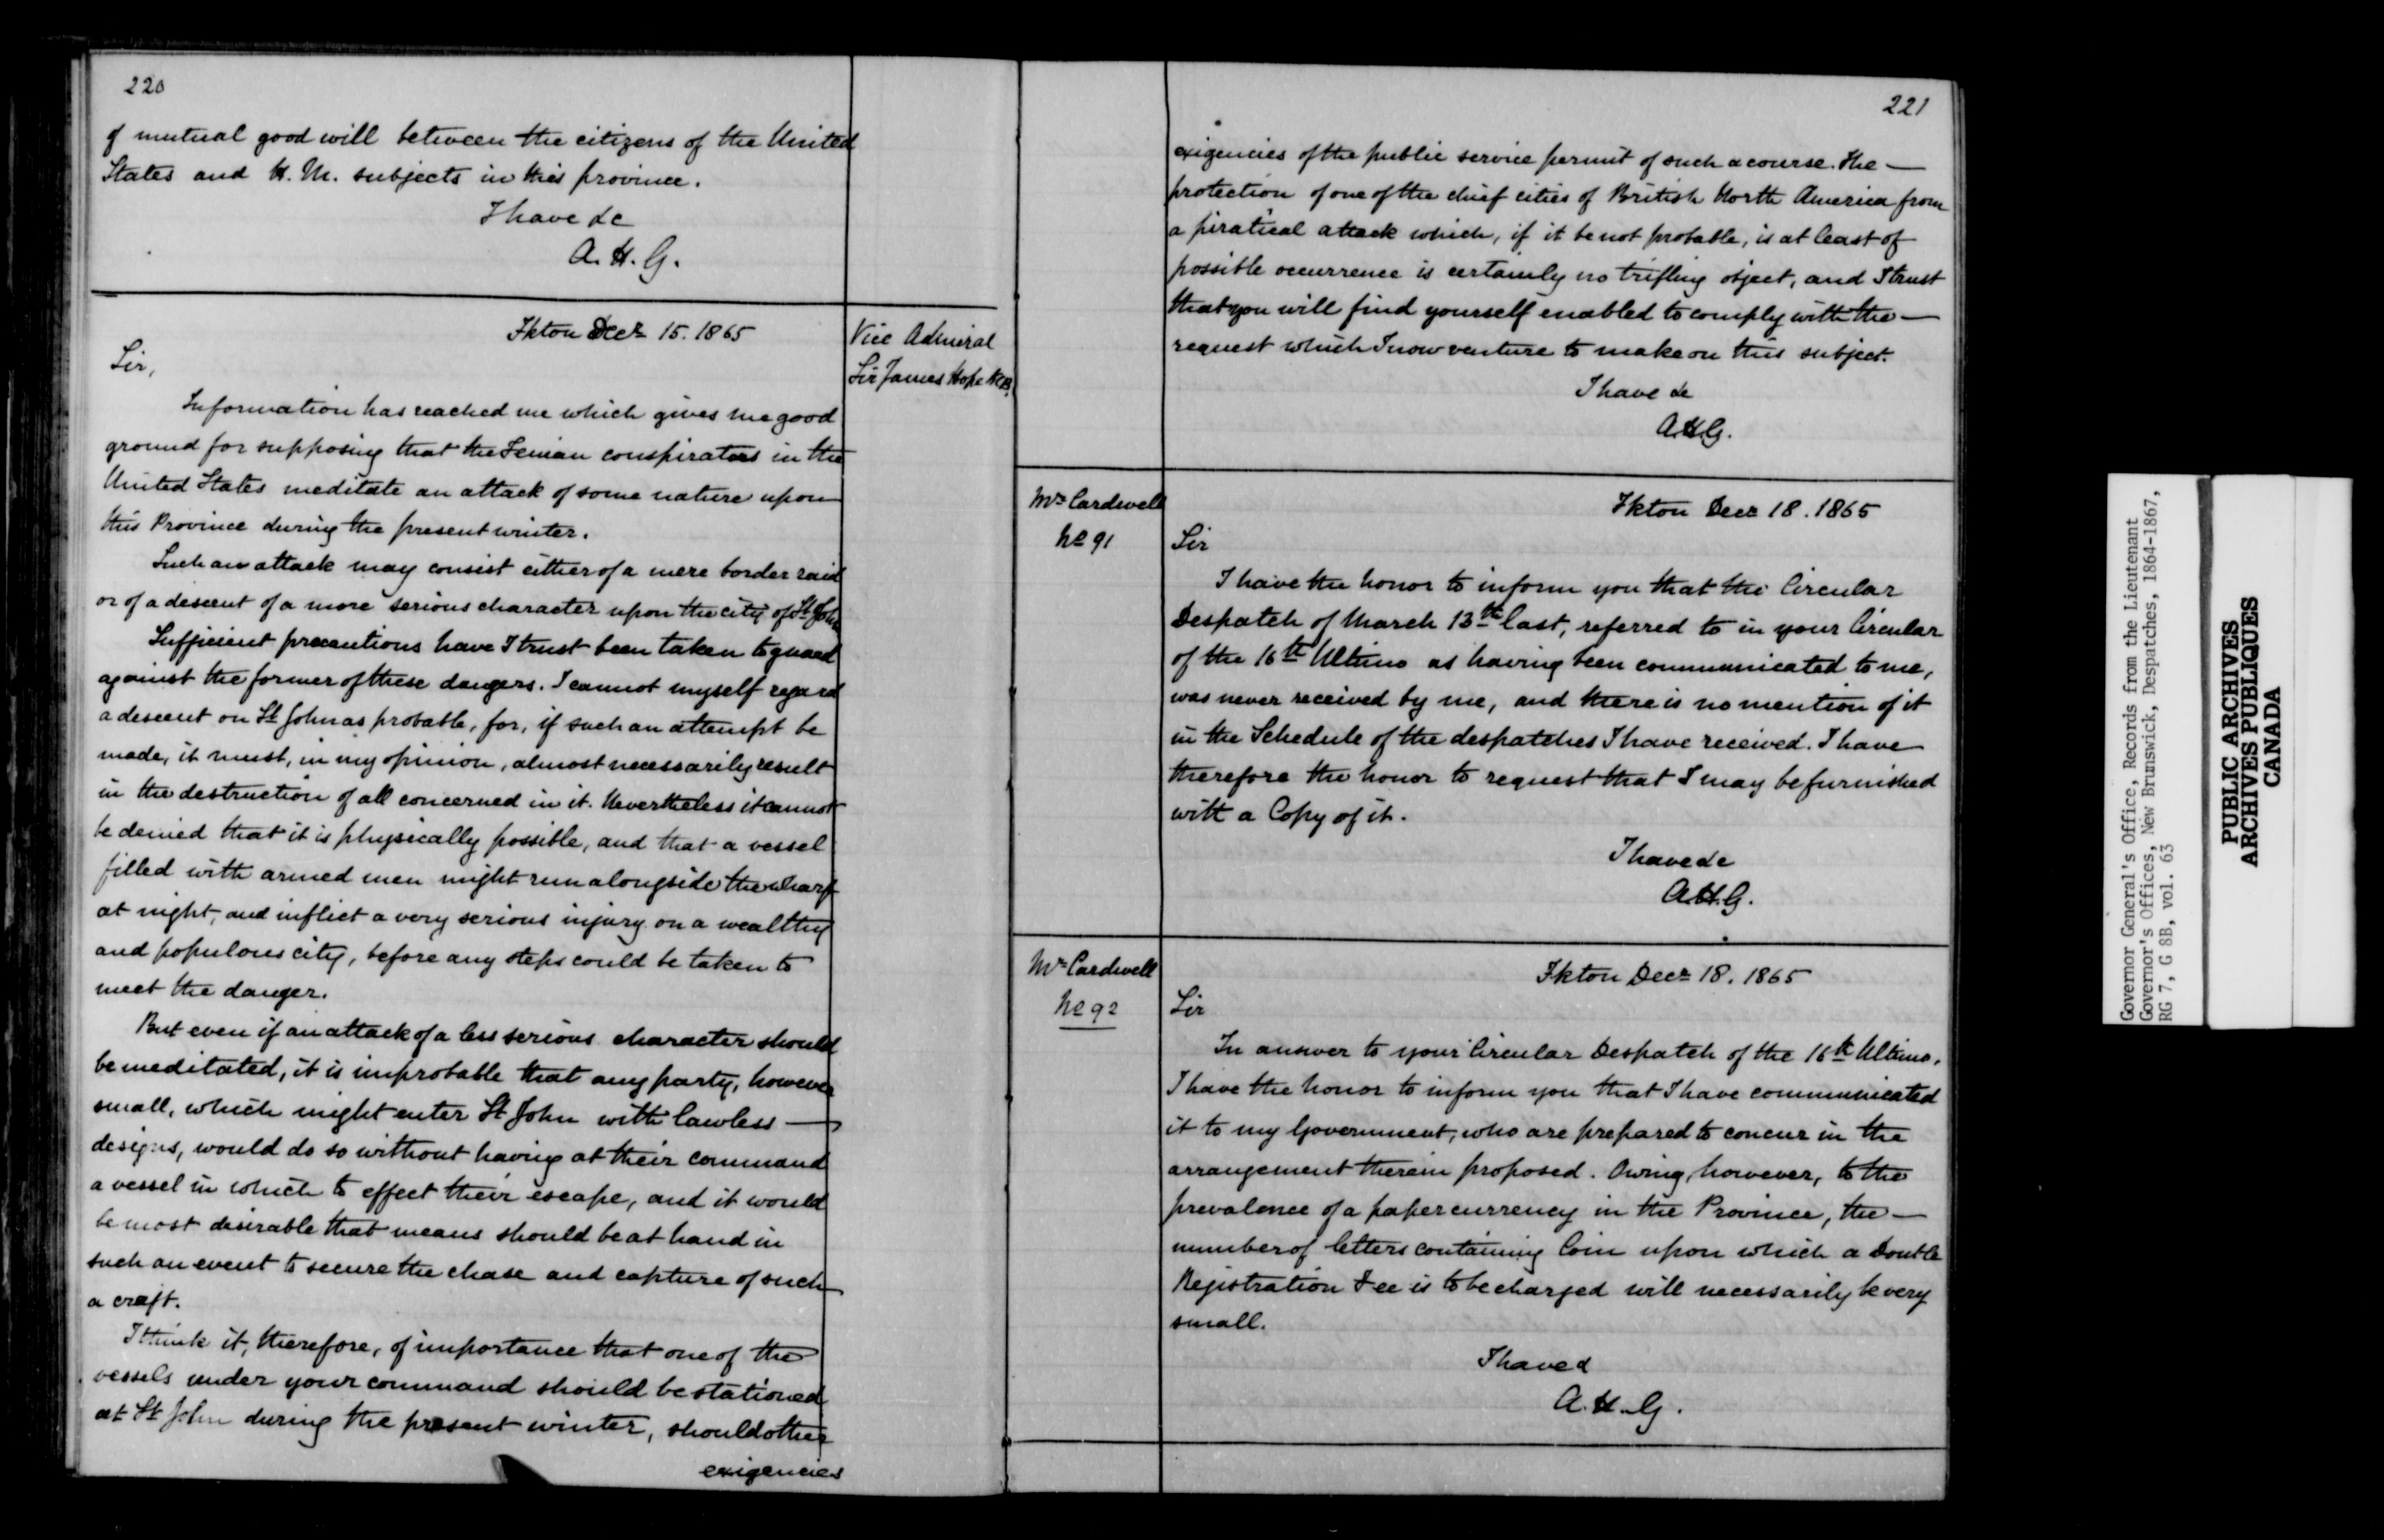 220
of mutual good will between the citizens of the United
States and H. M. subjects in this province.
I have &c
A. H. G.
Fkton Decr 15. 1865
Vice Admiral
Sir James Hope KCB.
Sir,
Information has reached me which gives me good
ground for supposing that the Fenian conspirators in the
United States meditate an attack of some nature upon
this Province during the present winter.
Such an attack may consist either of a mere border raid
or of a descent of a more serious character upon the city of St John
Sufficient precautions have I trust been taken to guard
against the former of these dangers. I cannot myself regard
a descent on St John as probable, for, if such an attempt be
made, it must, in my opinion, almost necessarily result
in the destruction of all concerned in it. Nevertheless it cannot
be denied that it is physically possible, and that a vessel
filled with armed men might run alongside the wharf
at night, and inflict a very serious injury on a wealthy
and populous city, before any steps could be taken to
meet the danger.
But even if an attack of a less serious character should
be meditated, it is improbable that any party, however
small, which might enter St John with lawless —
designs, would do so without having at their command
a vessel in which to effect their escape, and it would
be most desirable that means should be at hand in
such an event to secure the chase and capture of such
a craft.
I think it, therefore, of importance that one of the
vessels under your command should be stationed
at St John during the present winter, should other
exigencies
221
exigencies of the public service permit of such a course. The —
protection of one of the chief cities of British North America from
a piratical attack which, if it be not probable, is at least of
possible occurrence is certainly no trifling object, and I trust
that you will find yourself enabled to comply with the —
request which I now venture to make on this subject.
I have &c
A.H.G.
Mr Cardwell
No 91
Fkton Decr 18. 1865
Sir
I have the honor to inform you that the Circular
Despatch of March 13th last, referred to in your Circular
of the 16th Ultimo as having been communicated to me,
was never received by me, and there is no mention of it
in the Schedule of the despatches I have received. I have
therefore the honor to request that I may be furnished
with a Copy of it.
I have &c
A.H.G.
Mr Cardwell
No 92
Fkton Decr 18. 1865
Sir
In answer to your Circular Despatch of the 16th Ultimo,
I have the honor to inform you that I have communicated
it to my Government, who are prepared to concur in the
arrangement therein proposed. Owing, however, to the
prevalence of a paper currency in the Province, the —
number of letters containing Coin upon which a Double
Registration Fee is to be charged will necessarily be very
small.
I have &
A. H. G.
Governor General's Office, Records from the Lieutenant
Governor's Offices, New Brunswick, Despatches, 1864-1867,
RG 7, G 8B, vol. 63
PUBLIC ARCHIVES
ARCHIVES PUBLIQUES
CANADA